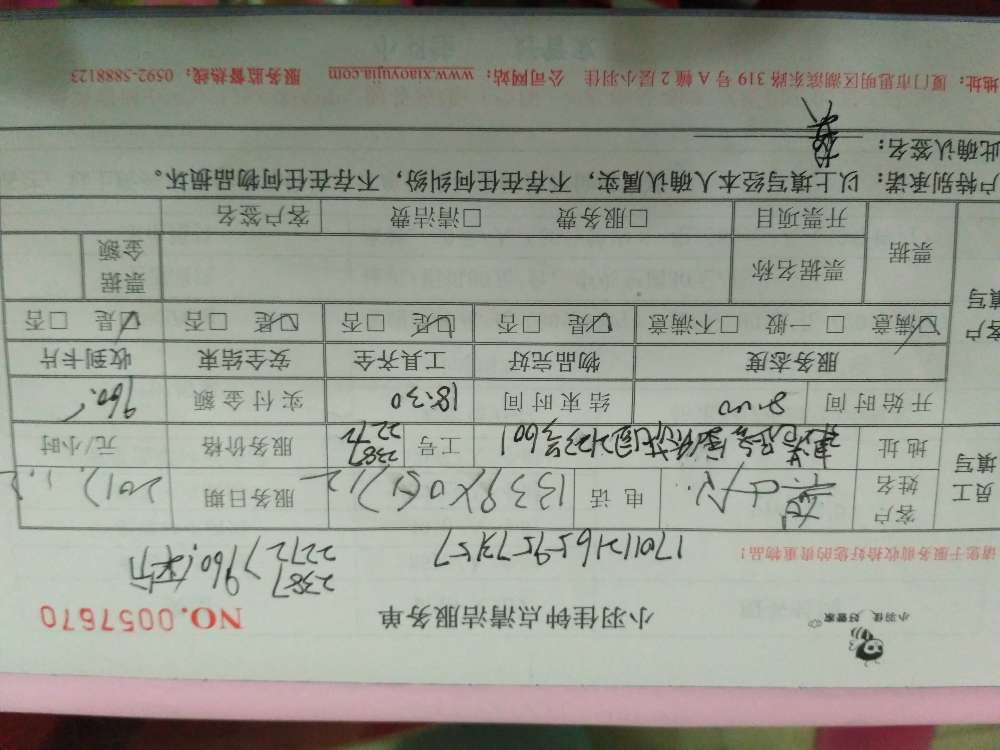 小羽佳 好管家
小羽佳钟点清洁服务单
NO.0057670
请您于服务前收拾好您的贵重物品！
17011216595957957
2387
2272
960.
员工填写
客户姓名
电话
服务日期
2017.1.13
地址
工号
2387
2272
服务价格
元/小时
开始时间
8:00
结束时间
18:30
实付金额
960.
客户填写
服务态度
物品完好
工具齐全
安全结束
收到卡片
☑满意 □一般 □不满意
☑是 □否
☑是 □否
☑是 □否
☑是 □否
票据
票据名称
票据金额
开票项目
□服务费 □清洁费
客户签名
户特别承诺：以上填写经本人确认属实，不存在任何纠纷，不存在任何物品损坏。
此确认签名：
地址：厦门市思明区湖滨东路 319 号 A 幢 2 层小羽佳 公司网站：www.xiaoyujia.com 服务监督热线：0592-5888123